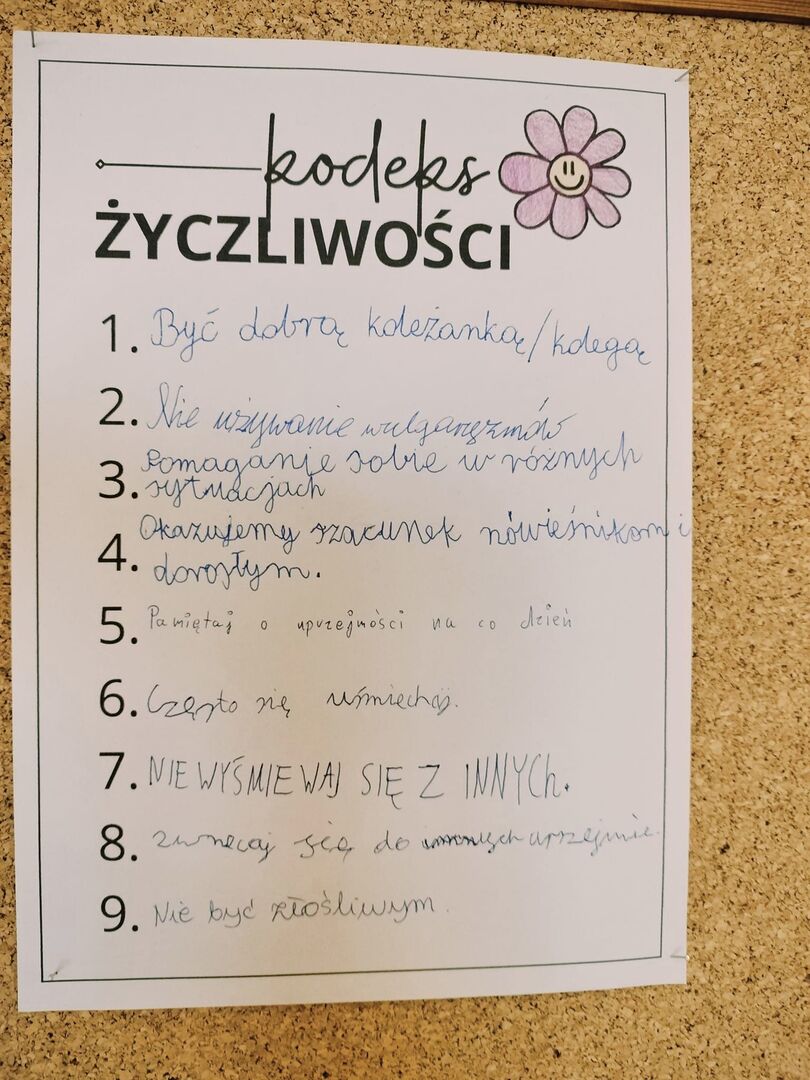 kodeks
ŻYCZLIWOŚCI
1. Być dobrą koleżanką/kolegą
2. Nie używanie wulgaryzmów
3. Pomaganie sobie w różnych
sytuacjach
4. Okazujemy szacunek rówieśnikom i
dorosłym.
5. Pamiętaj o uprzejmości na co dzień
6. Często się uśmiechaj.
7. NIE WYŚMIEWAJ SIĘ Z INNYCh.
8. zwracaj się do innych uprzejmie.
9. Nie być złośliwym.